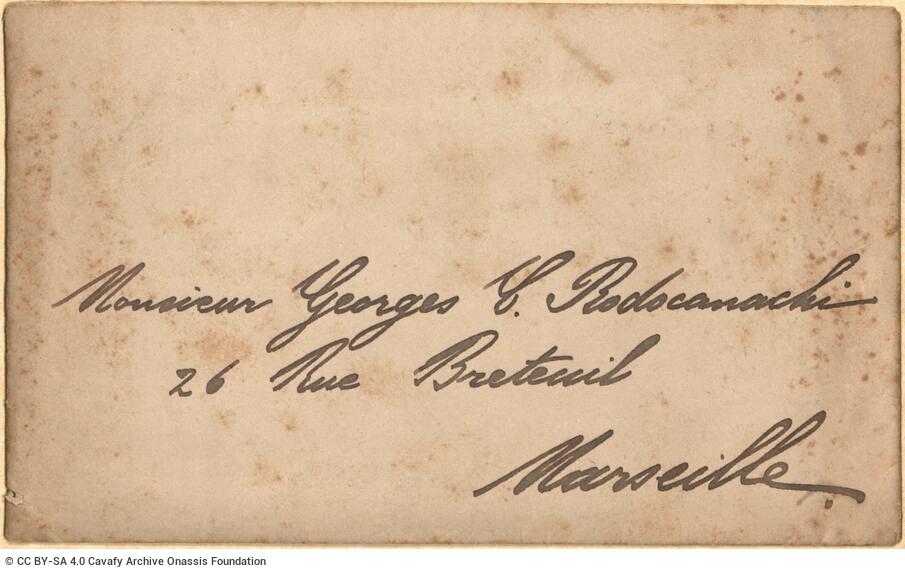 Monsieur Georges C. Rodocanachi
26 Rue Breteuil
Marseille.
© CC BY-SA 4.0 Cavafy Archive Onassis Foundation